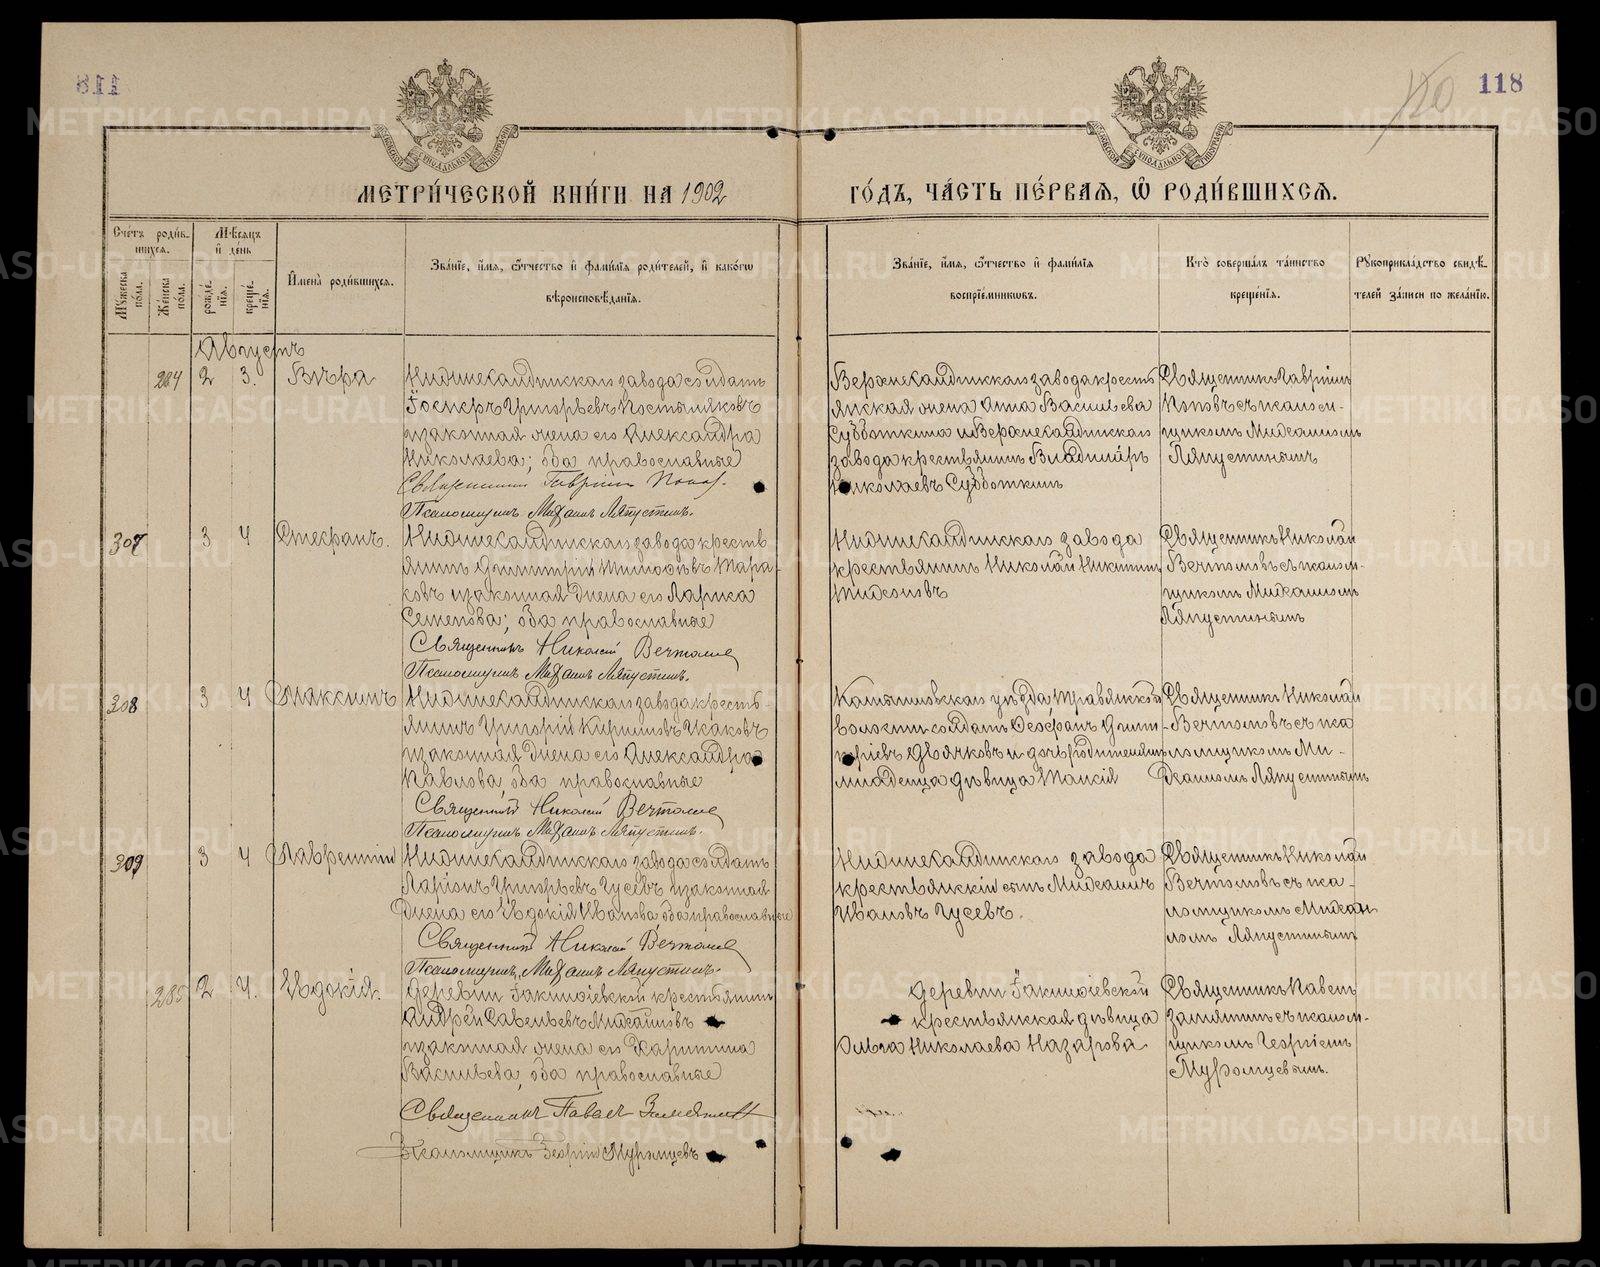 118
118
120
МОСКОВСКОЙ СѴНОДАЛЬНОЙ ТИПОГРАФІИ
МОСКОВСКОЙ СѴНОДАЛЬНОЙ ТИПОГРАФІИ
МЕТРИ́ЧЕСКОЙ КНИ́ГИ НА 1902
ГО́ДЪ, ЧА́СТЬ ПЕ́РВАѦ, Ѽ РОДИ́ВШИХСѦ.
Сче́тъ роди́в-
шихсѧ.
Мѹ́жеска по́ла.
Же́нска по́ла.
Мѣ́сѧцъ
и҆ де́нь
рожде́-
нїѧ.
креще́-
нїѧ.
И҆мена̀ роди́вшихсѧ.
Зва́нїе, и҆́мѧ, ѻ҆́тчество и҆ фами́лїѧ роди́телей, и҆ како́гѡ
вѣроисповѣ́данїѧ.
Зва́нїе, и҆́мѧ, ѻ҆́тчество и҆ фами́лїѧ
воспрїе́мникѡвъ.
Кто̀ соверша́лъ та́инство
креще́нїѧ.
Рѹкоприкла́дство свидѣ́-
телей за́писи по жела́нїю.
Августъ
284 2 3. Вѣра
Нижнесалдинскаго завода солдатъ
Григорьевъ Постыляковъ
и законная жена его Александра
Николаева; оба православные
Священникъ Гавріилъ Попов.
Псаломщикъ Михаилъ Ляпустинъ.
Верхнесалдинскаго завода кресть
янская жена Анна Васильева
Субботкина и Верхнесалдинскаго
завода крестьянинъ Владиміръ
Николаевъ Субботкинъ
Священникъ Гавріилъ
Поповъ съ псалом-
щикомъ Михаиломъ
Ляпустинымъ
307 3 4 Стефанъ.
Нижнесалдинскаго завода кресть
янинъ Димитрій Тара-
ковъ и законная жена его Лариса
Семенова; оба православные
Священникъ Николай
Псаломщикъ Михаилъ Ляпустинъ.
Нижнесалдинскаго завода
крестьянинъ Николай Никитинъ
Священникъ Николай
съ псалом-
щикомъ Михаиломъ
Ляпустинымъ
308 3 4 Максимъ
Нижнесалдинскаго завода кресть
янинъ Григорій Кириловъ Исаковъ
и законная жена его Александра
Павлова, оба православные
Священникъ Николай
Псаломщикъ Михаилъ Ляпустинъ.
Камышловскаго уѣзда, Травянской
волости солдатъ Феофанъ Дмит-
ріевъ и дочь родителей
младенца дѣвица Таисія
Священникъ Николай
съ пса
ломщикомъ Ми-
хаиломъ Ляпустинымъ
309 3 4 Лаврентій
Нижнесалдинскаго завода солдатъ
Ларіонъ Григорьевъ Гусевъ и законная
жена его Евдокія Иванова, оба православные
Священникъ Николай
Псаломщикъ Михаилъ Ляпустинъ.
Нижнесалдинскаго завода
крестьянскій сынъ Михаилъ
Ивановъ Гусевъ.
Священникъ Николай
съ пса-
ломщикомъ Михаи
ломъ Ляпустинымъ
285 2 4. Евдокія.
Деревни крестьянинъ
Андрей Савельевъ
и законная жена его Харитина
Васильева, оба православные
Священникъ Павелъ Замятинъ
Псаломщикъ Георгій Муромцевъ
Деревни
крестьянская дѣвица
Ольга Николаева Назарова
Священникъ Павелъ
Замятинъ съ псалом-
щикомъ Георгіемъ
Муромцевымъ.
METRIKI.GASO-URAL.RU